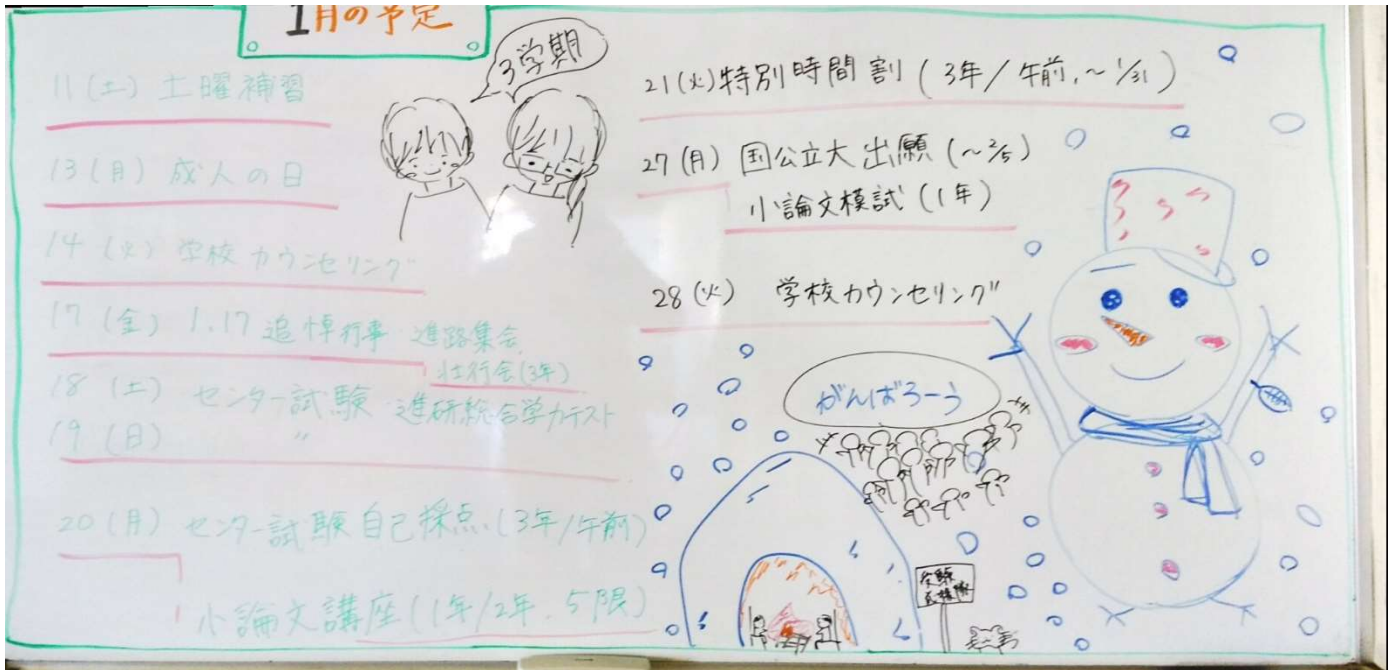 1月の予定
11(土) 土曜補習
13(月) 成人の日
14(火) 学校カウンセリング
17(金) 1.17追悼行事 進路集会
壮行会(3年)
18(土) センター試験 進研総合学力テスト
19(日) 〃
20(月) センター試験自己採点(3年/午前)
小論文講座(1年/2年.5限)
3学期
21(火)特別時間割(3年/午前.~1/31)
27(月) 国公立大出願(~2/5)
小論文模試(1年)
28(火) 学校カウンセリング
がんばろーう
受験
応援隊